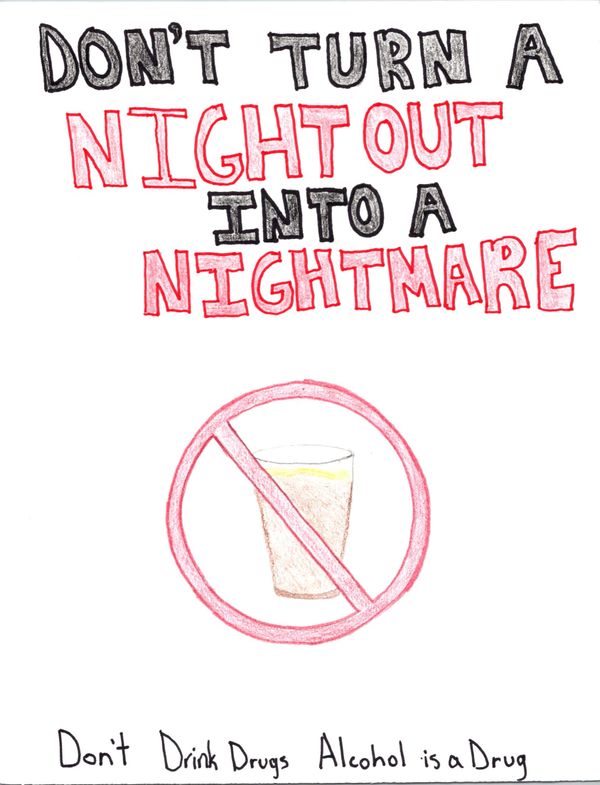 DON'T TURN A
NIGHT OUT
INTO A
NIGHTMARE
Don't Drink Drugs Alcohol is a Drug